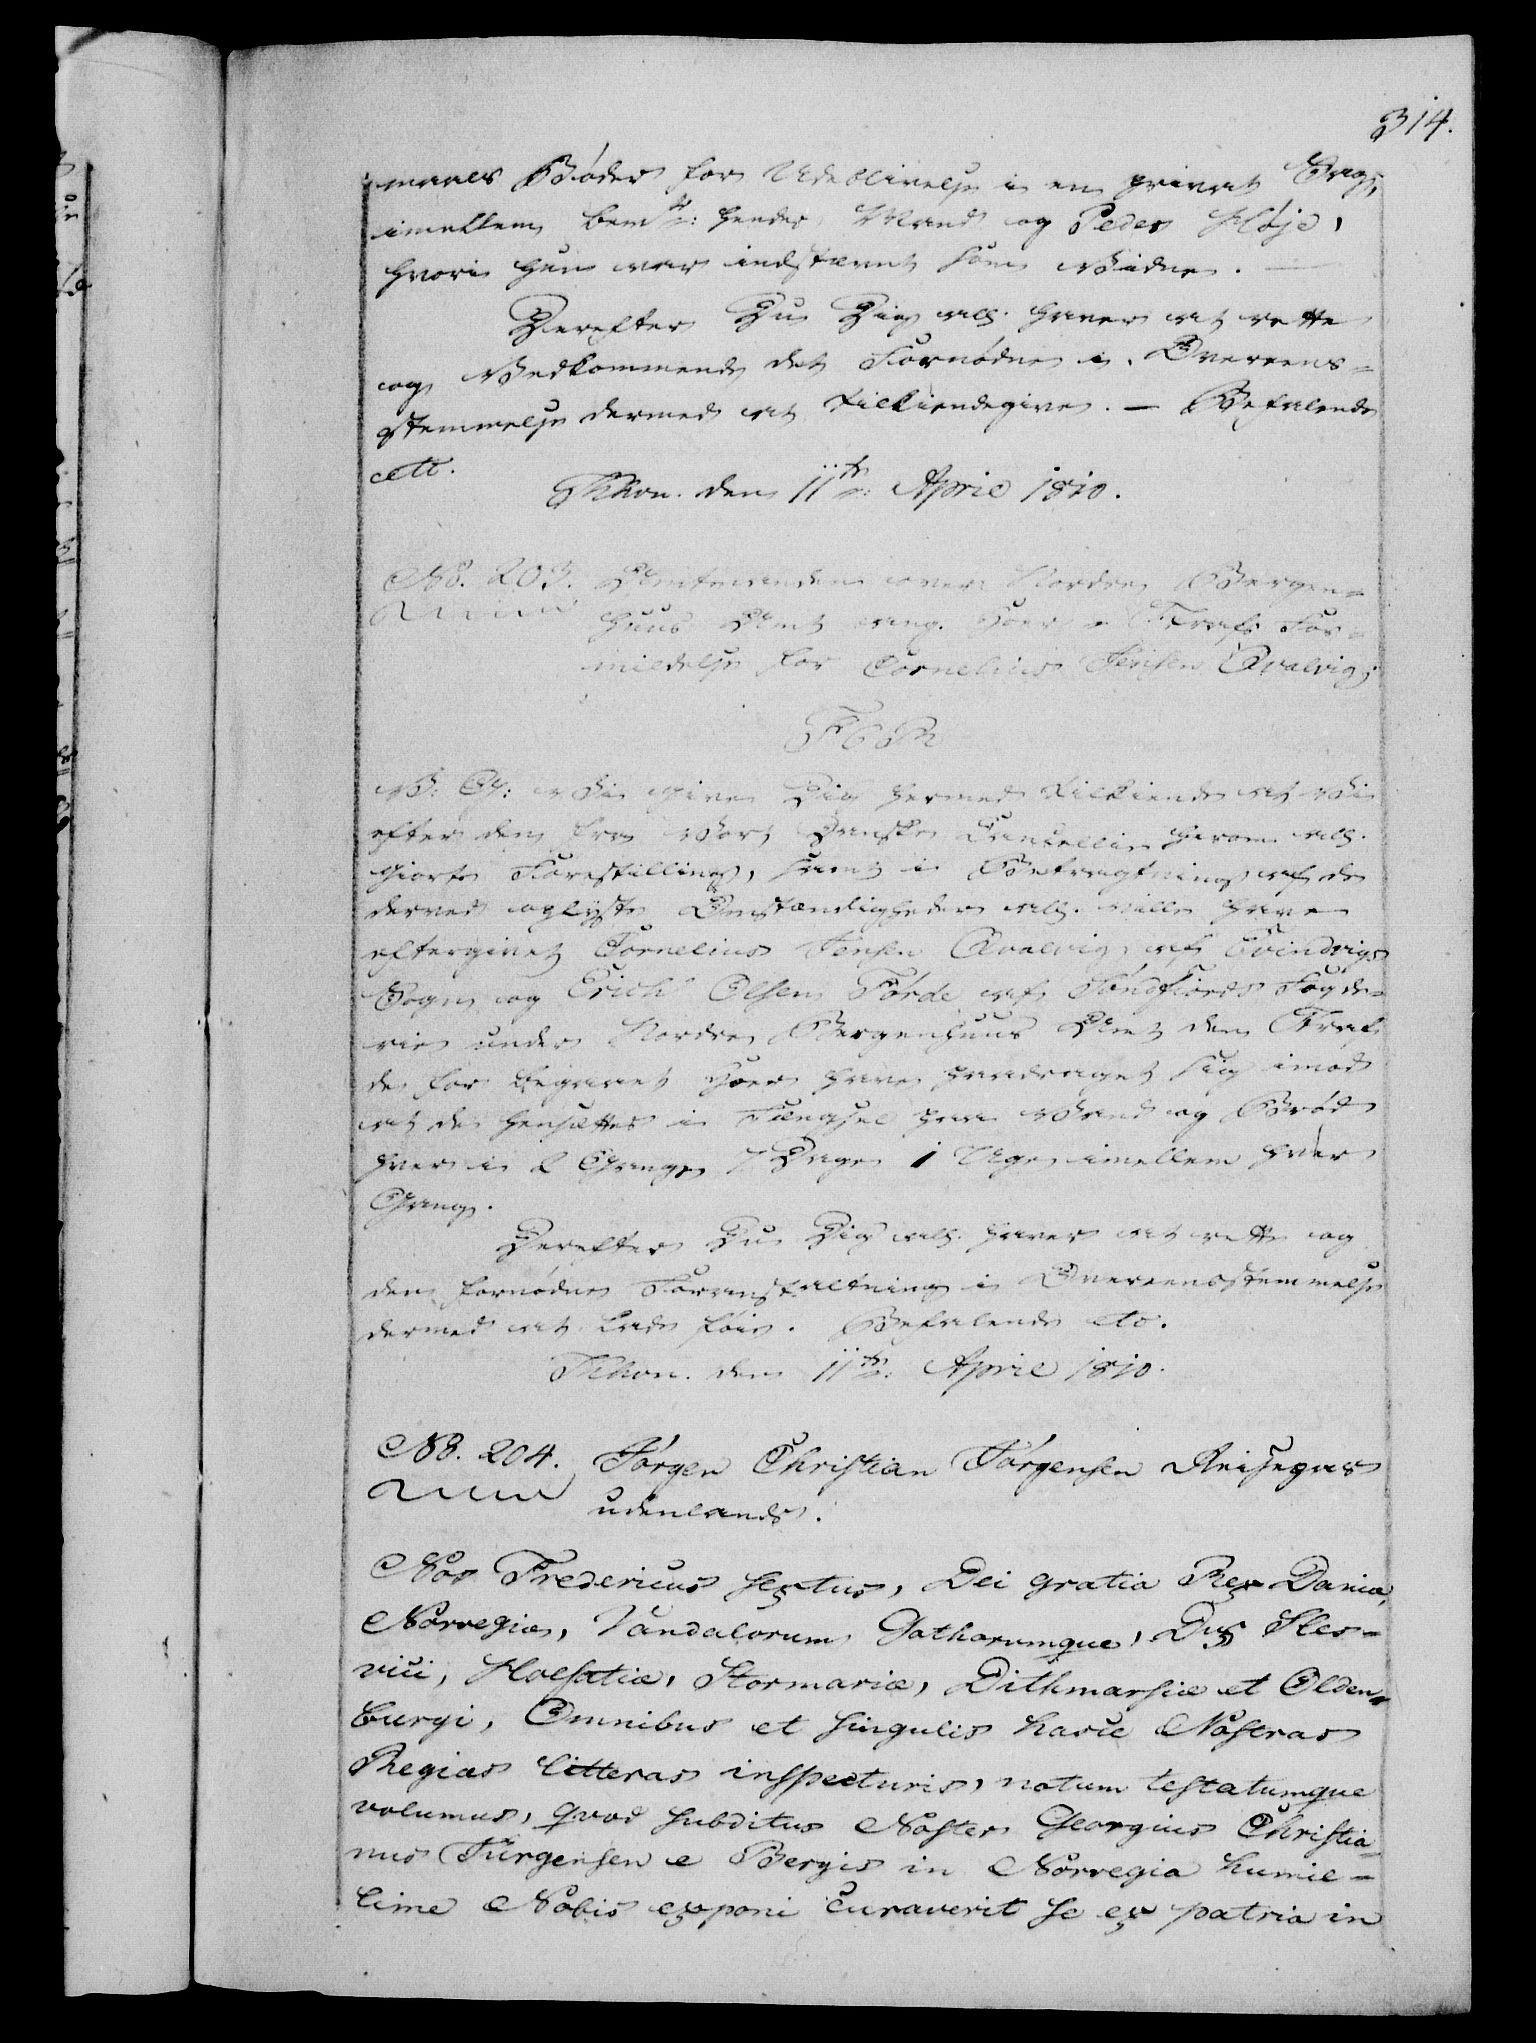 314.
maals Bøder for Udeblivelse i en privat Sag,
imellem bemte: hendes Mand og Peder Høje,
hvori hun var indstævnt som Vidne. —
Derefter Du Dig all. haver at rette
og Vedkommende det Fornødne i Overeens-
stemmelse dermed at tilkiendegive. — Befalende
etc.
Khvn. den 11te: April 1810.
No. 203. Amtmanden over Nordre Bergen-
huus Amt ang. Straf For-
mildelse for Cornelius Jensen Qvalvig,
F 6 R
V: G: Vi give Dig hermed tilkiende at Vi
efter den fra Vort Danske Cancellie herom all.
giorte Forestilling, samt i Betragtning af de
derved oplyste Omstændigheder all. ville have
eftergivet Cornelius Jensen Qvalvig af Evindvigs
Sogn og Erich Olsen Førde af Søndfiords Fogde-
rie under Nordre Bergenhuus Amt den Straf
de for begaaet Hoer have paadraget sig imod
at de hensættes i Fængsel paa Vand og Brød
hver i 2 Gange 5 Dage 1 Uge imellem hver
Gang.
Derefter Du Dig all. haver at rette og
den fornødne Foranstaltning i Overeensstemmelse
dermed at lade føie. Befalende etc.
Khvn. den 11te: April 1810.
No. 204. Jørgen Christian Jørgensen Reisepas
udenlands.
Nos Fredericus sextus, Dei gratia Rex Daniæ,
Norvegiæ, Vandalorum Gothorumque, Dux Sles-
vici, Holsatiæ, Stormariæ, Dithmarsiæ et Olden-
burgi, Omnibus et singulis hasce Nostras
Regias litteras inspecturis, notum testatumque
volumus, qvod subditus Noster Georgius Christia-
nus Jürgensen e Bergis in Norvegia humil-
lime Nobis exponi curaverit se ex patria in